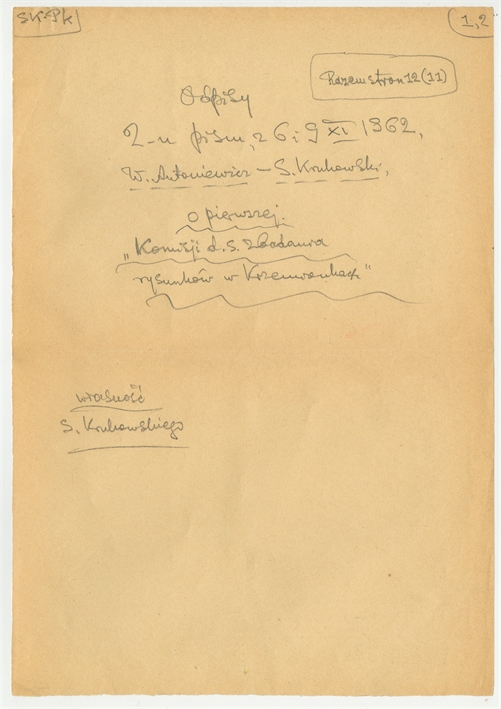 SK-Pk
1,2
Razem stron 12 (11)
Odpisy
2-u pism, z 6 i 9 XI 1962,
W. Antoniewicz – S. Krukowski,
o pierwszej
„Komisji d.s. zbadania
rysunków w Krzemionkach”
własność
S. Krukowskiego